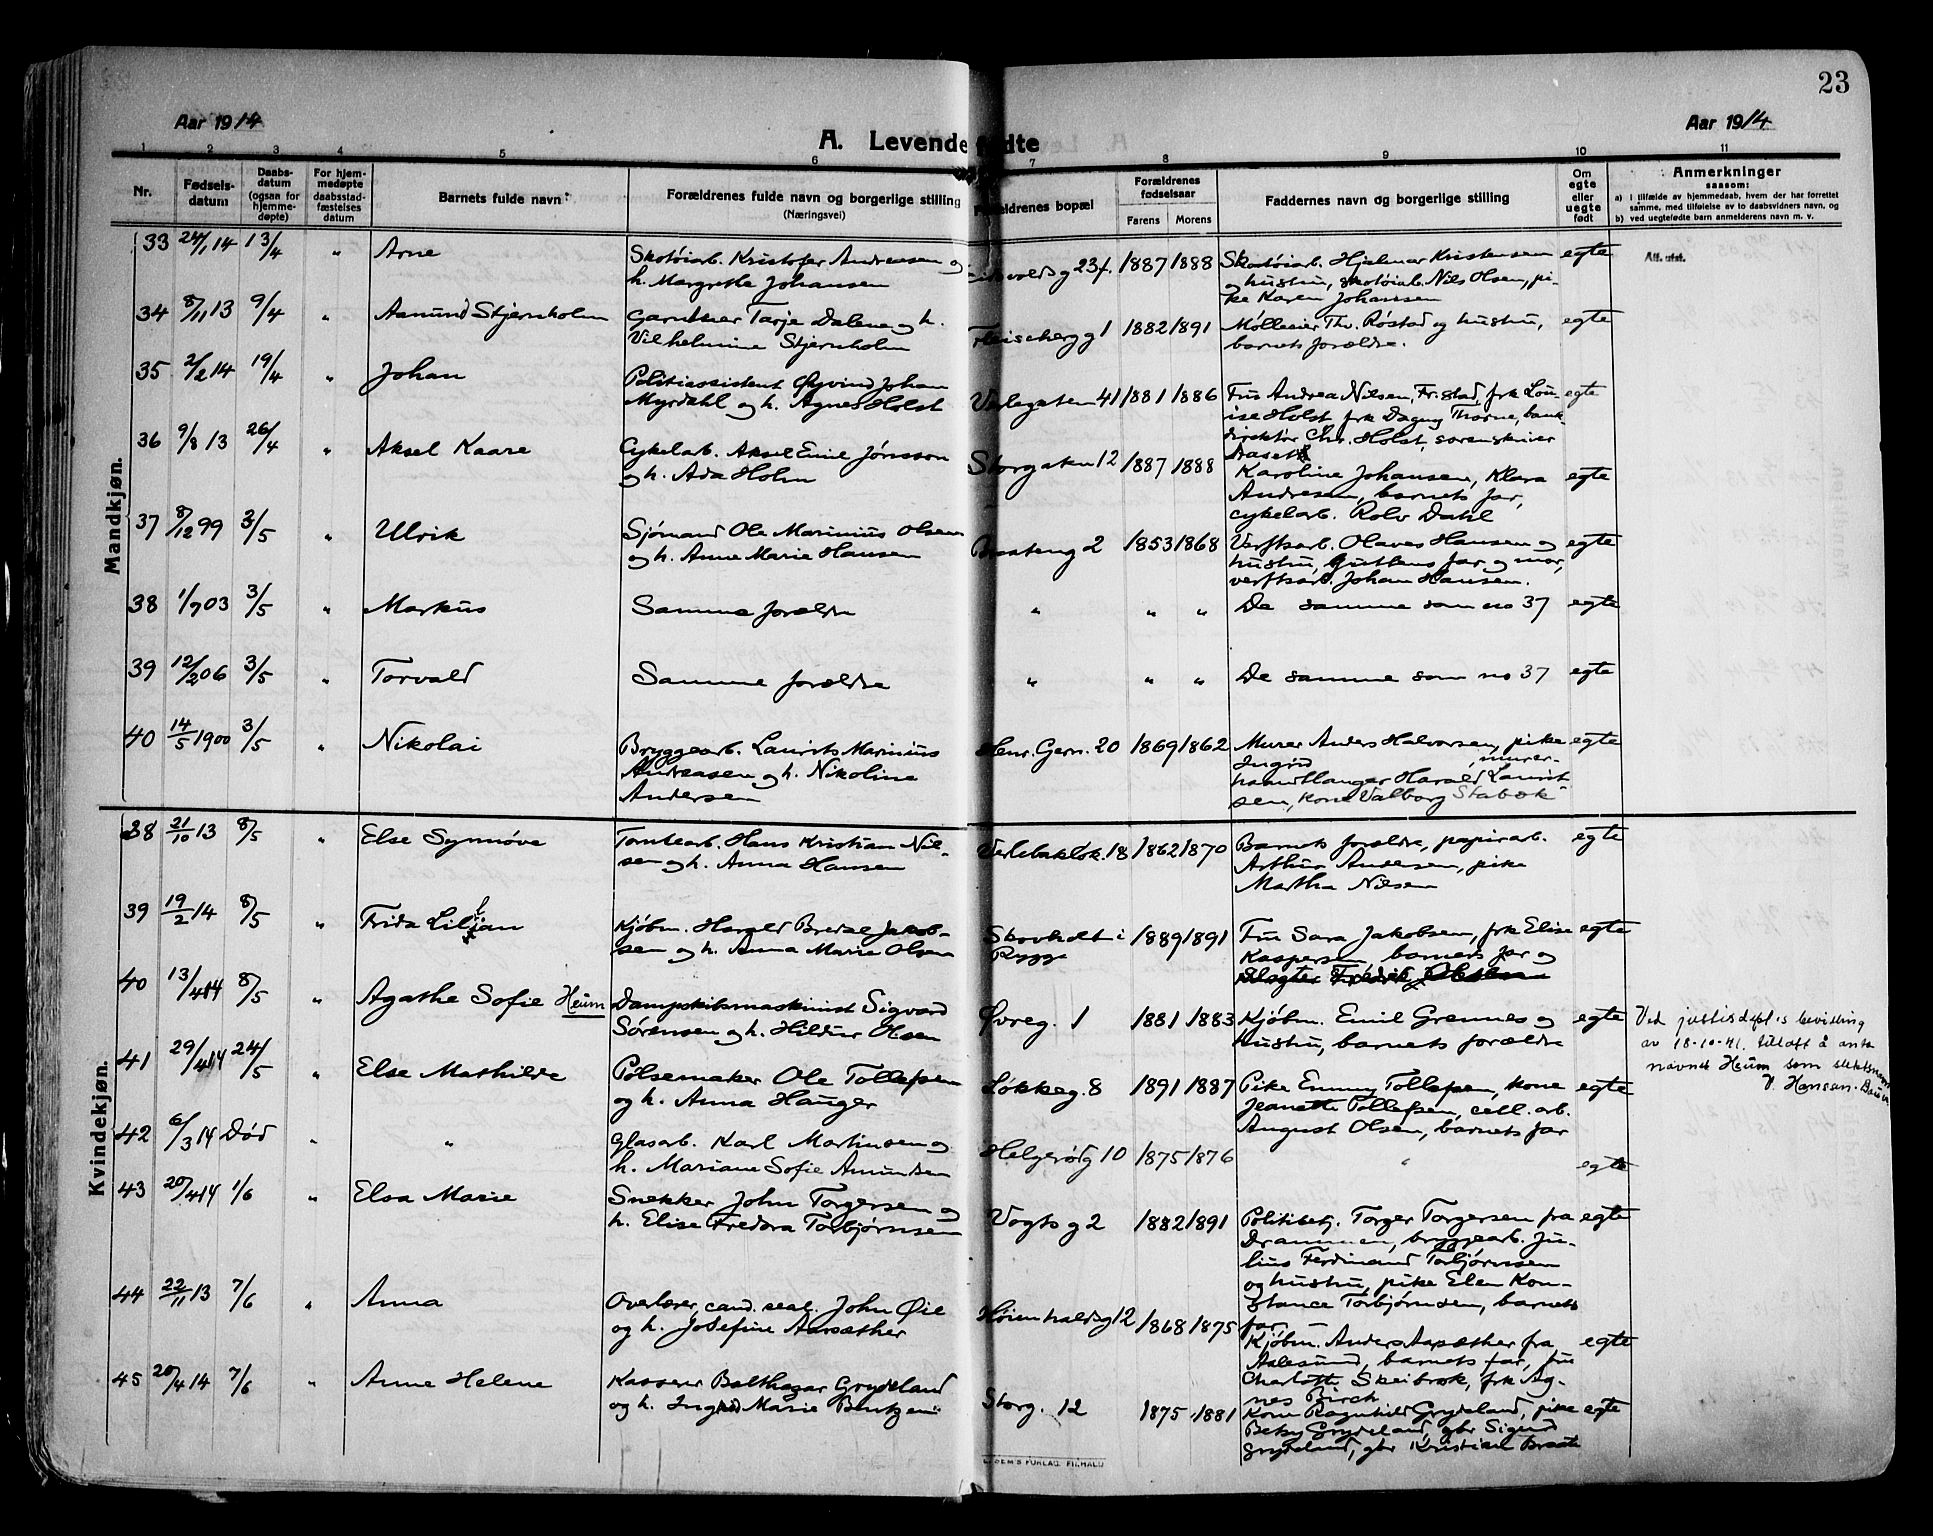 23
Aar 1914
A. Levende fødte
Aar 1914
1 2 3 4 5 6 7 8 9 10 11
Nr.
Fødsels-
datum
Daabs-
datum
(ogsaa for
hjemme-
døpte)
For hjem-
medøpte
daabsstad-
fæstelses
datum
Barnets fulde navn
Forældrenes fulde navn og borgerlige stilling
(Næringsvei)
Forældrenes bopæl
Forældrenes
fødselsaar
Farens Morens
Faddernes navn og borgerlige stilling
Om
egte
eller
uegte
født
Anmerkninger
saasom:
a) I tilfælde av hjemmedaab, hvem der har forrettet
samme, med tilføielse av to daabsvidners navn, og
b) ved uegtefødte barn anmelderens navn m. v.
Mandkjøn.
33 24/1 14 13/4 " Arne
Skotøiarb. Kristofer Andreasen og
h. Margrethe Johansen
Eidsvoldsg 23f. 1887 1888
Skotøiarb. Hjelmar Kristensen
og hustru, skotøiarb. Nils Olsen, pi-
ke Karen Johanssen
egte
Att. utst.
34 8/11 13 9/4 " Asmund Stjernholm
Gartner Tarje Dalene og h.
Vilhelmine Stjernholm
Fleischerg 1 1882 1891
Møllerier Thv. Røstad og hustru,
barnets forældre.
egte
35 2/2 14 19/4 " Johan
Politiassistent Øyvind Johan
Myrdahl og h. Agnes Holst
Verlegaten 41 1881 1886
Fru Andrea Nilsen, Fr.stad, frk Lou-
ise Holst, frk Dagny Thorne, bank-
direktør Chr. Holst, sorenskriver
egte
36 9/8 13 26/4 " Aksel Kaare
Cykelarb. Aksel Emil Jønsson
og h. Ada Holm
Storgaten 12 1887 1888
Karoline Johansen, Klara
Andresen, barnets far,
cykelarb. Rolv Dahl
egte
37 8/12 99 3/5 " Ulrik
Sjømand Ole Marinius Olsen
og h. Anne Marie Hansen
Braateng 2 1853 1868
Verftsarb. Olaves Hansen og
hustru, guttens far og mor,
verftsarb. Johan Hansen.
egte
38 1/7 03 3/5 " Markus
Samme forældre
" " "
De samme som no 37 egte
39 12/2 06 3/5 " Torvald
Samme forældre
" " "
De samme som no 37 egte
40 14/5 1900 3/5 " Nikolai
Bryggearb. Laurits Marinius
Andreasen og h. Nikoline
Andersen
Henr. Gern. 20 1869 1862
Murer Anders Halvorsen, pike
Ingrid , murer-
haandlanger Harald Laurit-
sen, kone Valborg Stabæk
egte
Kvindekjøn.
38 21/10 13 8/5 " Else Synnøve
Tomtearb. Hans Kristian Nil-
sen og h. Anna Hansen
Verlebakløk. 18 1862 1870
Barnets forældre, papirarb.
Arthur Andersen, pike
Martha Nilsen
egte
39 19/2 14 8/5 " Frida Liljan
Kjøbm. Harald Bredal Jakob-
sen og h. Anna Marie Olsen
Skovholdt i
Rygge
1889 1891
Fru Sara Jakobsen, frk Elise
Kaspersen, barnets far og
egte
40 13/4 14 8/5 " Agathe Sofie Heum
Dampskibsmaskinist Sigvard
Sørensen og h. Hildur Olsen
Øvreg. 1 1881 1883
Kjøbm. Emil Grennes og
hustru, barnets forældre
egte
Ved justisdept.s bevilling
av 18-10-41. tillatt å anta
navnet Heum som slektsnavn
V. Hansen-
41 29/4 14 24/5 " Else Mathilde
Pølsemaker Ole Tollefsen
og h. Anna Hauger
Løkkeg. 8 1891 1887
Pike Emmy Tollefsen, kone
Jeanette Tollefsen, cell. arb.
August Olsen, barnets far
egte
42 6/3 14 Død " "
Glasarb. Karl Martinsen og
h. Mariane Sofie Amundsen
Helgerødg 10 1875 1876
" egte
43 20/4 14 1/6 " Elsa Marie
Snekker John Torgersen og
h. Elise Fredora Torbjørnsen
Vogts g 2 1882 1891
Politibetj. Torger Torgersen fra
Drammen, bryggearb. Ju-
lius Ferdinand Torbjørnsen
og hustru, pike Elen Kon-
stance Torbjørnsen, barnets
far
egte
44 22/11 13 7/6 " Anna
Overlærer, cand. real. John Øie
og h. Josefine Aarsæther
Høienhaldsg 12 1868 1875
Kjøbm. Anders Aarsæther fra
Aalesund, barnets far, fru
Charlotte Skeibrok, frk Ag-
nes Birch
egte
45 20/4 14 7/6 " Anne Helene
Kasserer Balthazar Grydeland
og h. Ingrid Marie Bentzen
Storg. 12 1875 1881
Kone Ragnhild Grydeland, pike
Betsy Grydeland, gbr Sigurd
Grydeland, gbr Kristian Braate
egte